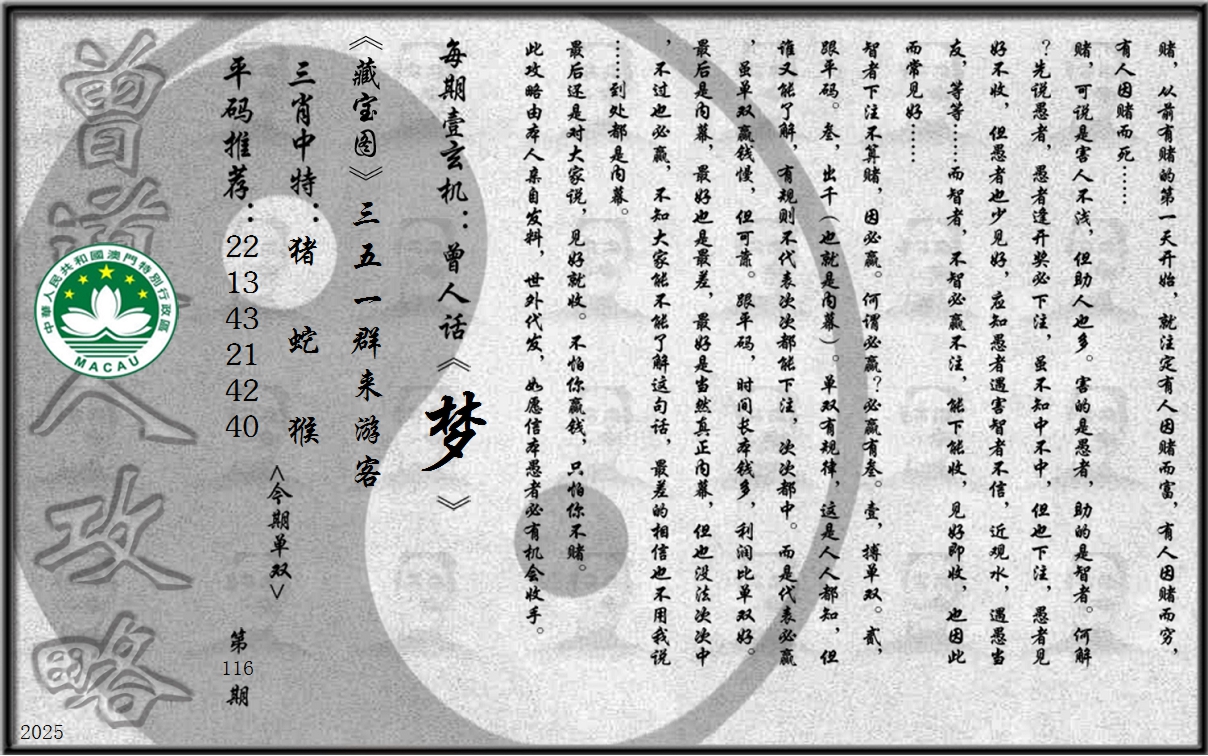 赌，从前有赌的第一天开始，就注定有人因赌而富，有人因赌而穷，
有人因赌而死……
赌，可说是害人不浅，但助人也多。害的是愚者，助的是智者。何解
？先说愚者，愚者逢开奖必下注，虽不知中不中，但也下注，愚者见
好不收，但愚者也少见好，应知愚者遇害智者不信，近观水，遇愚当
友，等等……而智者，不智必赢不注，能下能收，见好即收，也因此
而常见好……
智者下注不算赌，因必赢。何谓必赢？必赢有叁。壹，搏单双。贰，
跟平码。叁，出千（也就是内幕）。单双有规律，这是人人都知，但
谁又能了解，有规则不代表次次都能下注，次次都中。而是代表必赢
，虽单双赢钱慢，但可靠。跟平码，时间长本钱多，利润比单双好。
最后是内幕，最好也是最差，最好是当然真正内幕，但也没法次次中
，不过也必赢，不知大家能不能了解这句话，最差的相信也不用我说
……到处都是内幕。
最后还是对大家说，见好就收。不怕你赢钱，只怕你不赌。
此攻略由本人亲自发料，世外代发，如愿信本愚者必有机会收手。
每期壹玄机：曾人话《梦》
《藏宝图》三五一群来游客
三肖中特：猪 蛇 猴
<今期单双>
平码推荐：22 13 43 21 42 40
第116期
曾道人攻略
中華人民共和國澳門特別行政區
MACAU
2025